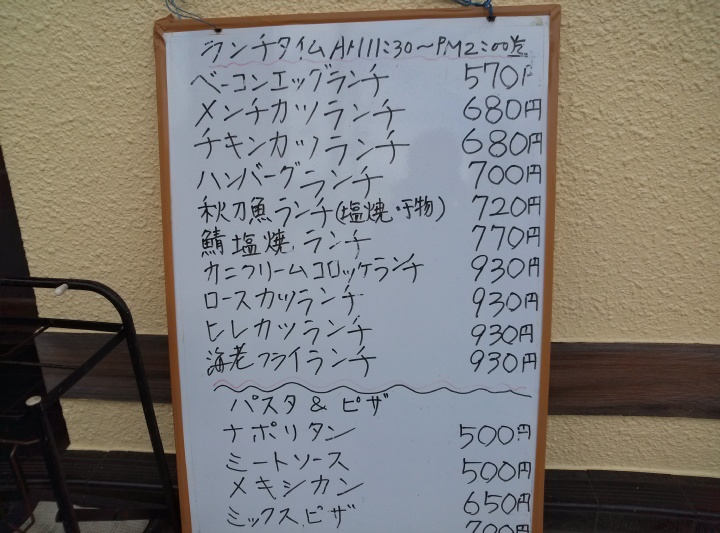 ランチタイム AM11:30〜PM2:00迄
ベーコンエッグランチ 570円
メンチカツランチ 680円
チキンカツランチ 680円
ハンバーグランチ 700円
秋刀魚ランチ(塩焼・干物) 720円
鯖塩焼ランチ 770円
カニクリームコロッケランチ 930円
ロースカツランチ 930円
ヒレカツランチ 930円
海老フライランチ 930円
パスタ & ピザ
ナポリタン 500円
ミートソース 500円
メキシカン 650円
ミックスピザ 700円